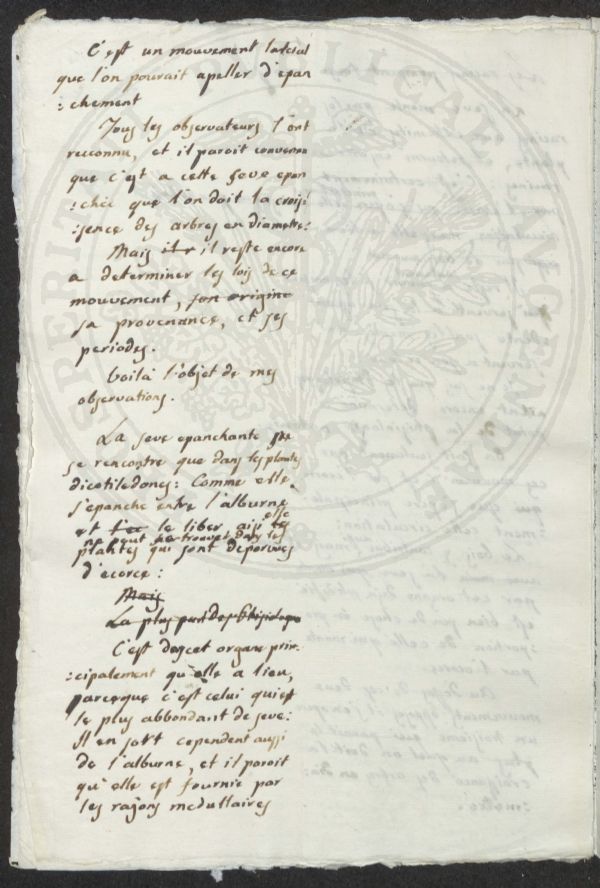 C'est un mouvement lateral
que l'on pourait apeller d'epan
:chement
Tous les observateurs l'ont
reconnu, et il paroit convenu
que c'est a cette seve epan
:chée que l'on doit la crois
:sence des arbres en diametre:
Mais il reste encore
a determiner les lois de ce
mouvement, son origine
sa provenance, et ses
periodes.
Voilà l'objet de mes
observations.
La seve epanchante ne
se rencontre que dans les plantes
dicotiledones: Comme elle
s'epanche entre l'alburne
et le liber, aisi elle
ne peut se trouver dans les
plantes qui sont depourvues
d'ecorce:
Mais
La plus part des Phisiologues
C'est de cet organe prin
:cipalement qu'elle a lieu,
parceque c'est celui qui est
le plus abbondant de seve:
Il en sort cependent aussi
de l'alburne, et il paroit
qu'elle est fournie par
les rayons medullaires